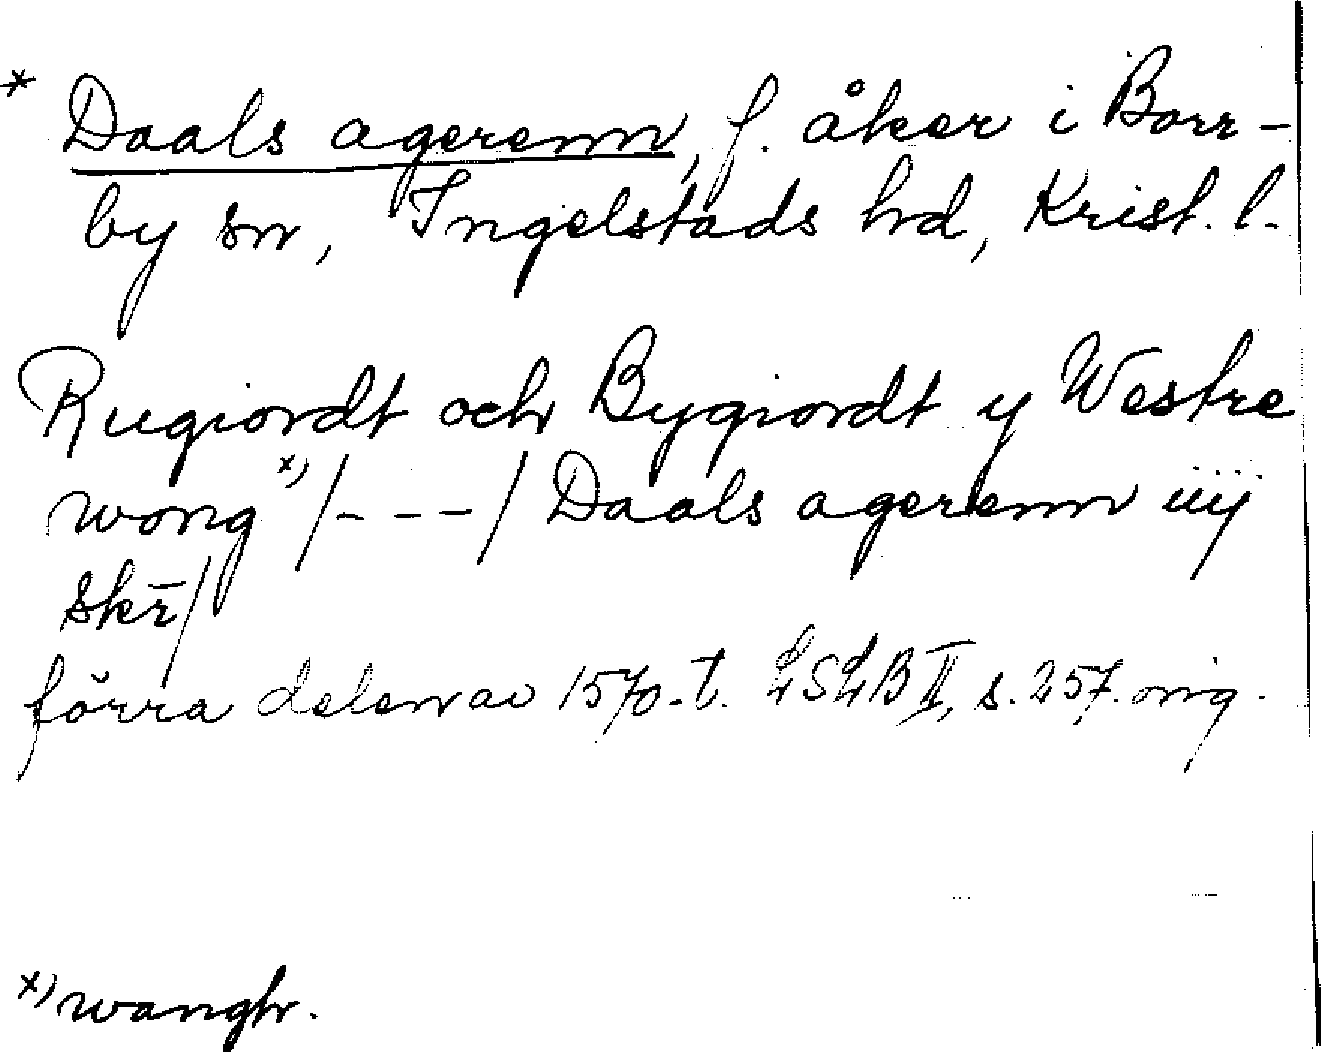 * Daals agerenn, f. åker i Borr-
by sn, Ingelstads hd, Krist. l.
Rugiordt och Bygiordt y Westre
wong x) /---/ Daals agerenn iiij
skr̄/
förra delen av 1570-t. LSLB II, s. 257. orig.
x) wangh.